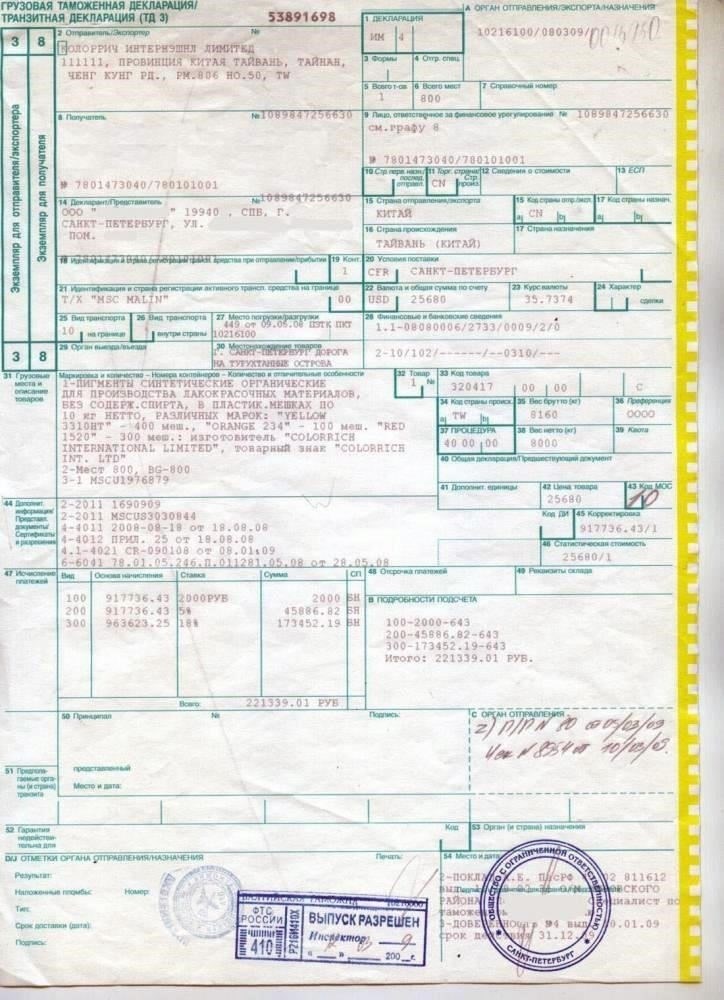 ГРУЗОВАЯ ТАМОЖЕННАЯ ДЕКЛАРАЦИЯ/
ТРАНЗИТНАЯ ДЕКЛАРАЦИЯ (ТД 3)
53891698
1 ДЕКЛАРАЦИЯ
ИМ 4
А ОРГАН ОТПРАВЛЕНИЯ/ЭКСПОРТА/НАЗНАЧЕНИЯ
10216100/080309/
3 8
Экземпляр для отправителя/экспортера
Экземпляр для получателя
2 Отправитель/Экспортер №
КОЛОРРИЧ ИНТЕРНЭШНЛ ЛИМИТЕД
111111, ПРОВИНЦИЯ КИТАЯ ТАЙВАНЬ, ТАЙНАН,
ЧЕНГ КУНГ РД., РМ.806 НО.50, TW
3 Формы
4 Отгр. спец.
5 Всего т-ов
1
6 Всего мест
800
7 Справочный номер
8 Получатель №1089847256630
№ 7801473040/780101001
9 Лицо, ответственное за финансовое урегулирование № 1089847256630
см.графу 8
№ 7801473040/780101001
10 Стр.перв.назн./ послед. отправл.
11 Торг. страна/ Стр. произв.
CN
12 Сведения о стоимости
13 ЕСП
14 Декларант/Представитель №1089847256630
ООО " " 19940 , СПБ, Г.
САНКТ-ПЕТЕРБУРГ, УЛ.
ПОМ.
15 Страна отправления/экспорта
КИТАЙ
15 Код страны отпр./эксп.
a| CN b|
17 Код страны назнач.
a| b|
16 Страна происхождения
ТАЙВАНЬ (КИТАЙ)
17 Страна назначения
18 Идентификация и страна регистрации трансп. средства при отправлении/прибытии
19 Конт.
1
20 Условия поставки
CFR САНКТ-ПЕТЕРБУРГ
21 Идентификация и страна регистрации активного трансп. средства на границе
Т/Х "MSC MALIN" 00
22 Валюта и общая сумма по счету
USD 25680
23 Курс валюты
35.7374
24 Характер сделки
25 Вид транспорта
10 на границе
26 Вид транспорта
внутри страны
27 Место погрузки/разгрузки
449 от 09.05.08 ПЗТК ПКТ
10216100
28 Финансовые и банковские сведения
1.1-08080006/2733/0009/2/0
2-10/102/------/--0310/---
3 8
29 Орган выезда/въезда
30 Местонахождение товаров
Г. САНКТ-ПЕТЕРБУРГ ДОРОГА
НА ТУРУХТАННЫЕ ОСТРОВА
31 Грузовые места и описание товаров
Маркировка и количество - Номера контейнеров - Количество и отличительные особенности
1-ПИГМЕНТЫ СИНТЕТИЧЕСКИЕ ОРГАНИЧЕСКИЕ
ДЛЯ ПРОИЗВОДСТВА ЛАКОКРАСОЧНЫХ МАТЕРИАЛОВ,
БЕЗ СОДЕРЖ.СПИРТА, В ПЛАСТИК.МЕШКАХ ПО
10 кг НЕТТО, РАЗЛИЧНЫХ МАРОК: "YELLOW
3310HT" - 400 меш., "ORANGE 234" - 100 меш. "RED
1520" - 300 меш.: изготовитель "COLORRICH
INTERNATIONAL LIMITED", товарный знак "COLORRICH
INT. LTD"
2-Мест 800, BG-800
3-1 MSCU1976879
32 Товар
1 №
33 Код товара
320417 00 00 С
34 Код страны происх.
a| TW b|
35 Вес брутто (кг)
8160
36 Преференция
ОООО
37 ПРОЦЕДУРА
40 00 00
38 Вес нетто (кг)
8000
39 Квота
40 Общая декларация/Предшествующий документ
41 Дополнит. единицы
42 Цена товара
25680
43 Код МОС
10
44 Дополнит. информация/ Представл. документы/ Сертификаты и разрешения
2-2011 1690909
2-2011 MSCUS3030844
4-4011 2008-08-18 от 18.08.08
4-4012 ПРИЛ. 25 от 18.08.08
4.1-4021 CR-090108 от 08.01.09
6-6041 78.01.05.246.П.011281.05.08 от 28.05.08
Код ДИ
45 Корректировка
917736.43/1
46 Статистическая стоимость
25680/1
47 Исчисление платежей
Вид Основа начисления Ставка Сумма СП
100 917736.43 2000РУБ 2000 БН
200 917736.43 5% 45886.82 БН
300 963623.25 18% 173452.19 БН
Всего: 221339.01 РУБ
48 Отсрочка платежей
49 Реквизиты склада
В ПОДРОБНОСТИ ПОДСЧЕТА
100-2000-643
200-45886.82-643
300-173452.19-643
Итого: 221339.01 РУБ.
50 Принципал № Подпись:
представленный
Место и дата:
С ОРГАН ОТПРАВЛЕНИЯ
2) П/П N 80 от 05/03/09
Чек N 8954 от 10/03/09.
51 Предполагаемые органы (и страна) транзита
52 Гарантия недействительна для
Код
53 Орган (и страна) назначения
D/J ОТМЕТКИ ОРГАНА ОТПРАВЛЕНИЯ/НАЗНАЧЕНИЯ
Печать:
Результат:
Наложенные пломбы: Номер:
Тип:
Срок доставки (дата):
Подпись:
ФТС РОССИИ
410
ВЫПУСК РАЗРЕШЕН
Инспектор
200 г.
54 Место и дата:
811612
3-ДОВЕРЕННОСТЬ №4
срок действия 31.12.
ОБЩЕСТВО С ОГРАНИЧЕННОЙ ОТВЕТСТВЕННОСТЬЮ
САНКТ-ПЕТЕРБУРГ